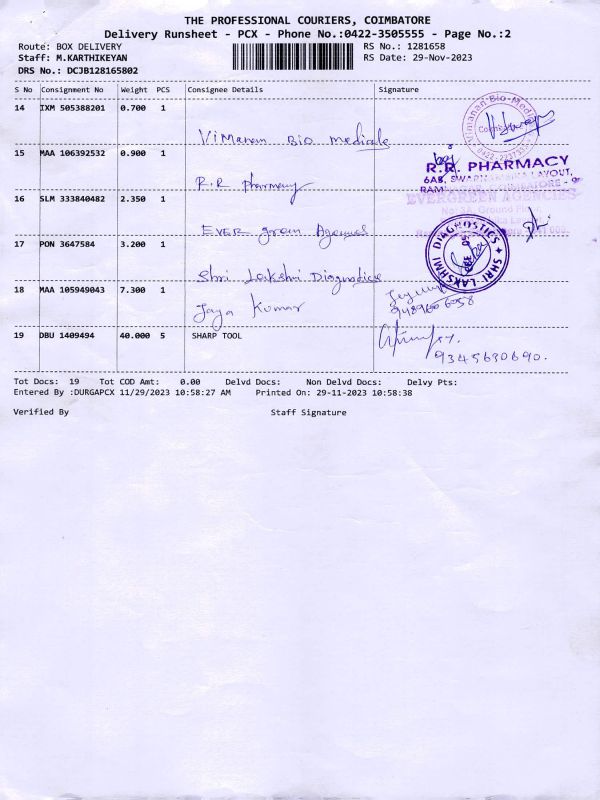 THE PROFESSIONAL COURIERS, COIMBATORE
Delivery Runsheet - PCX - Phone No.:0422-3505555 - Page No.:2
Route: BOX DELIVERY
RS No.: 1281658
Staff: M.KARTHIKEYAN
RS Date: 29-Nov-2023
DRS No.: DCJB128165802
S No Consignment No Weight PCS Consignee Details Signature
14 IXM 505388201 0.700 1
Vimanan Bio medicale
15 MAA 106392532 0.900 1
R.R pharmacy
R.R. PHARMACY
16 SLM 333840482 2.350 1
EVERGREEN AGENCIES
EVER green Agencies
17 PON 3647584 3.200 1
SHRI LAKSHMI DIAGNOSTICS
Shri Lakshmi Diagnostics
18 MAA 105949043 7.300 1
Jaya Kumar
9489606058
19 DBU 1409494 40.000 5 SHARP TOOL
9345630690.
Tot Docs: 19 Tot COD Amt: 0.00 Delvd Docs: Non Delvd Docs: Delvy Pts:
Entered By :DURGAPCX 11/29/2023 10:58:27 AM Printed On: 29-11-2023 10:58:38
Verified By Staff Signature